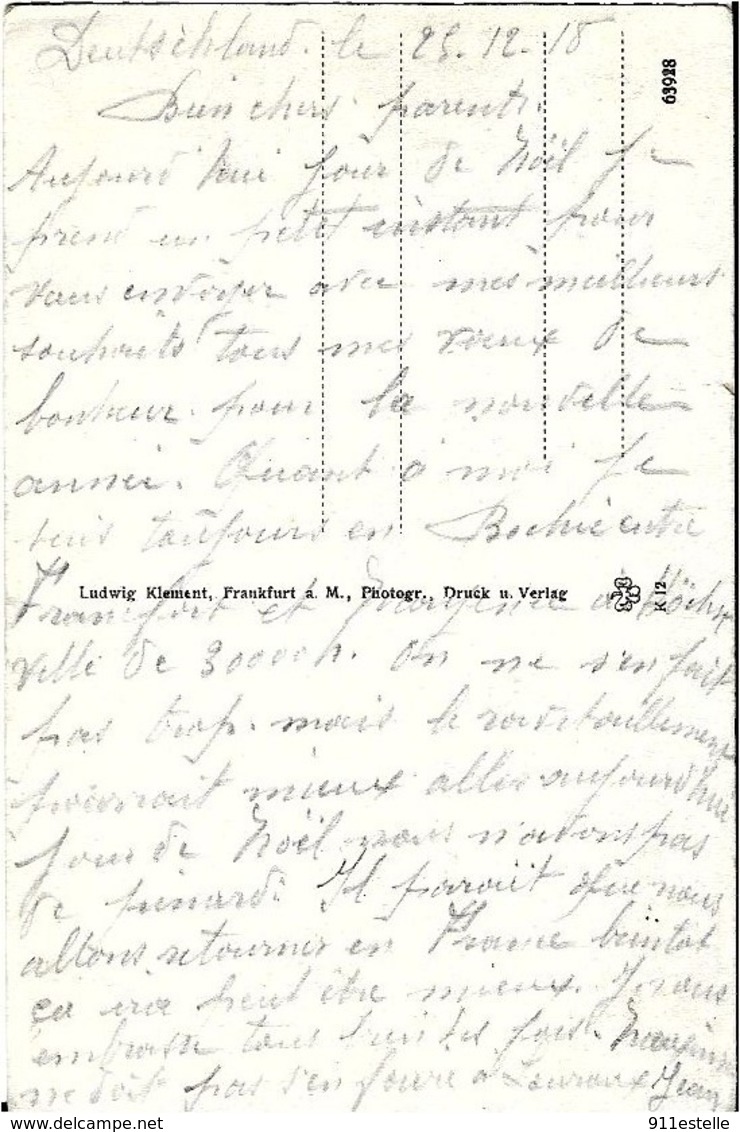 Deutschland. le 25-12-18
Bien chers parents.
Aujourd'hui jour de Noël je
prend un petit instant pour
vous envoyer avec mes meilleurs
souhaits tous mes vœux de
bonheur pour la nouvelle
année. Quant à moi je
suis toujours en Bochie entre
Ludwig Klement, Frankfurt a. M., Photogr., Druck u. Verlag
K 12
63928
Francfort et Mayence à Höchst
ville de 30000 h. On ne s'en fait
pas trop. mais le ravitaillement
pourrait mieux aller aujourd'hui
jour de Noël nous n'avons pas
de pinard. Il parait que nous
allons retourner en France bientot
ça ira peut être mieux. Je vous
embrasse tous bien des fois.
ne doit pas s'en faire a Jean
911estelle